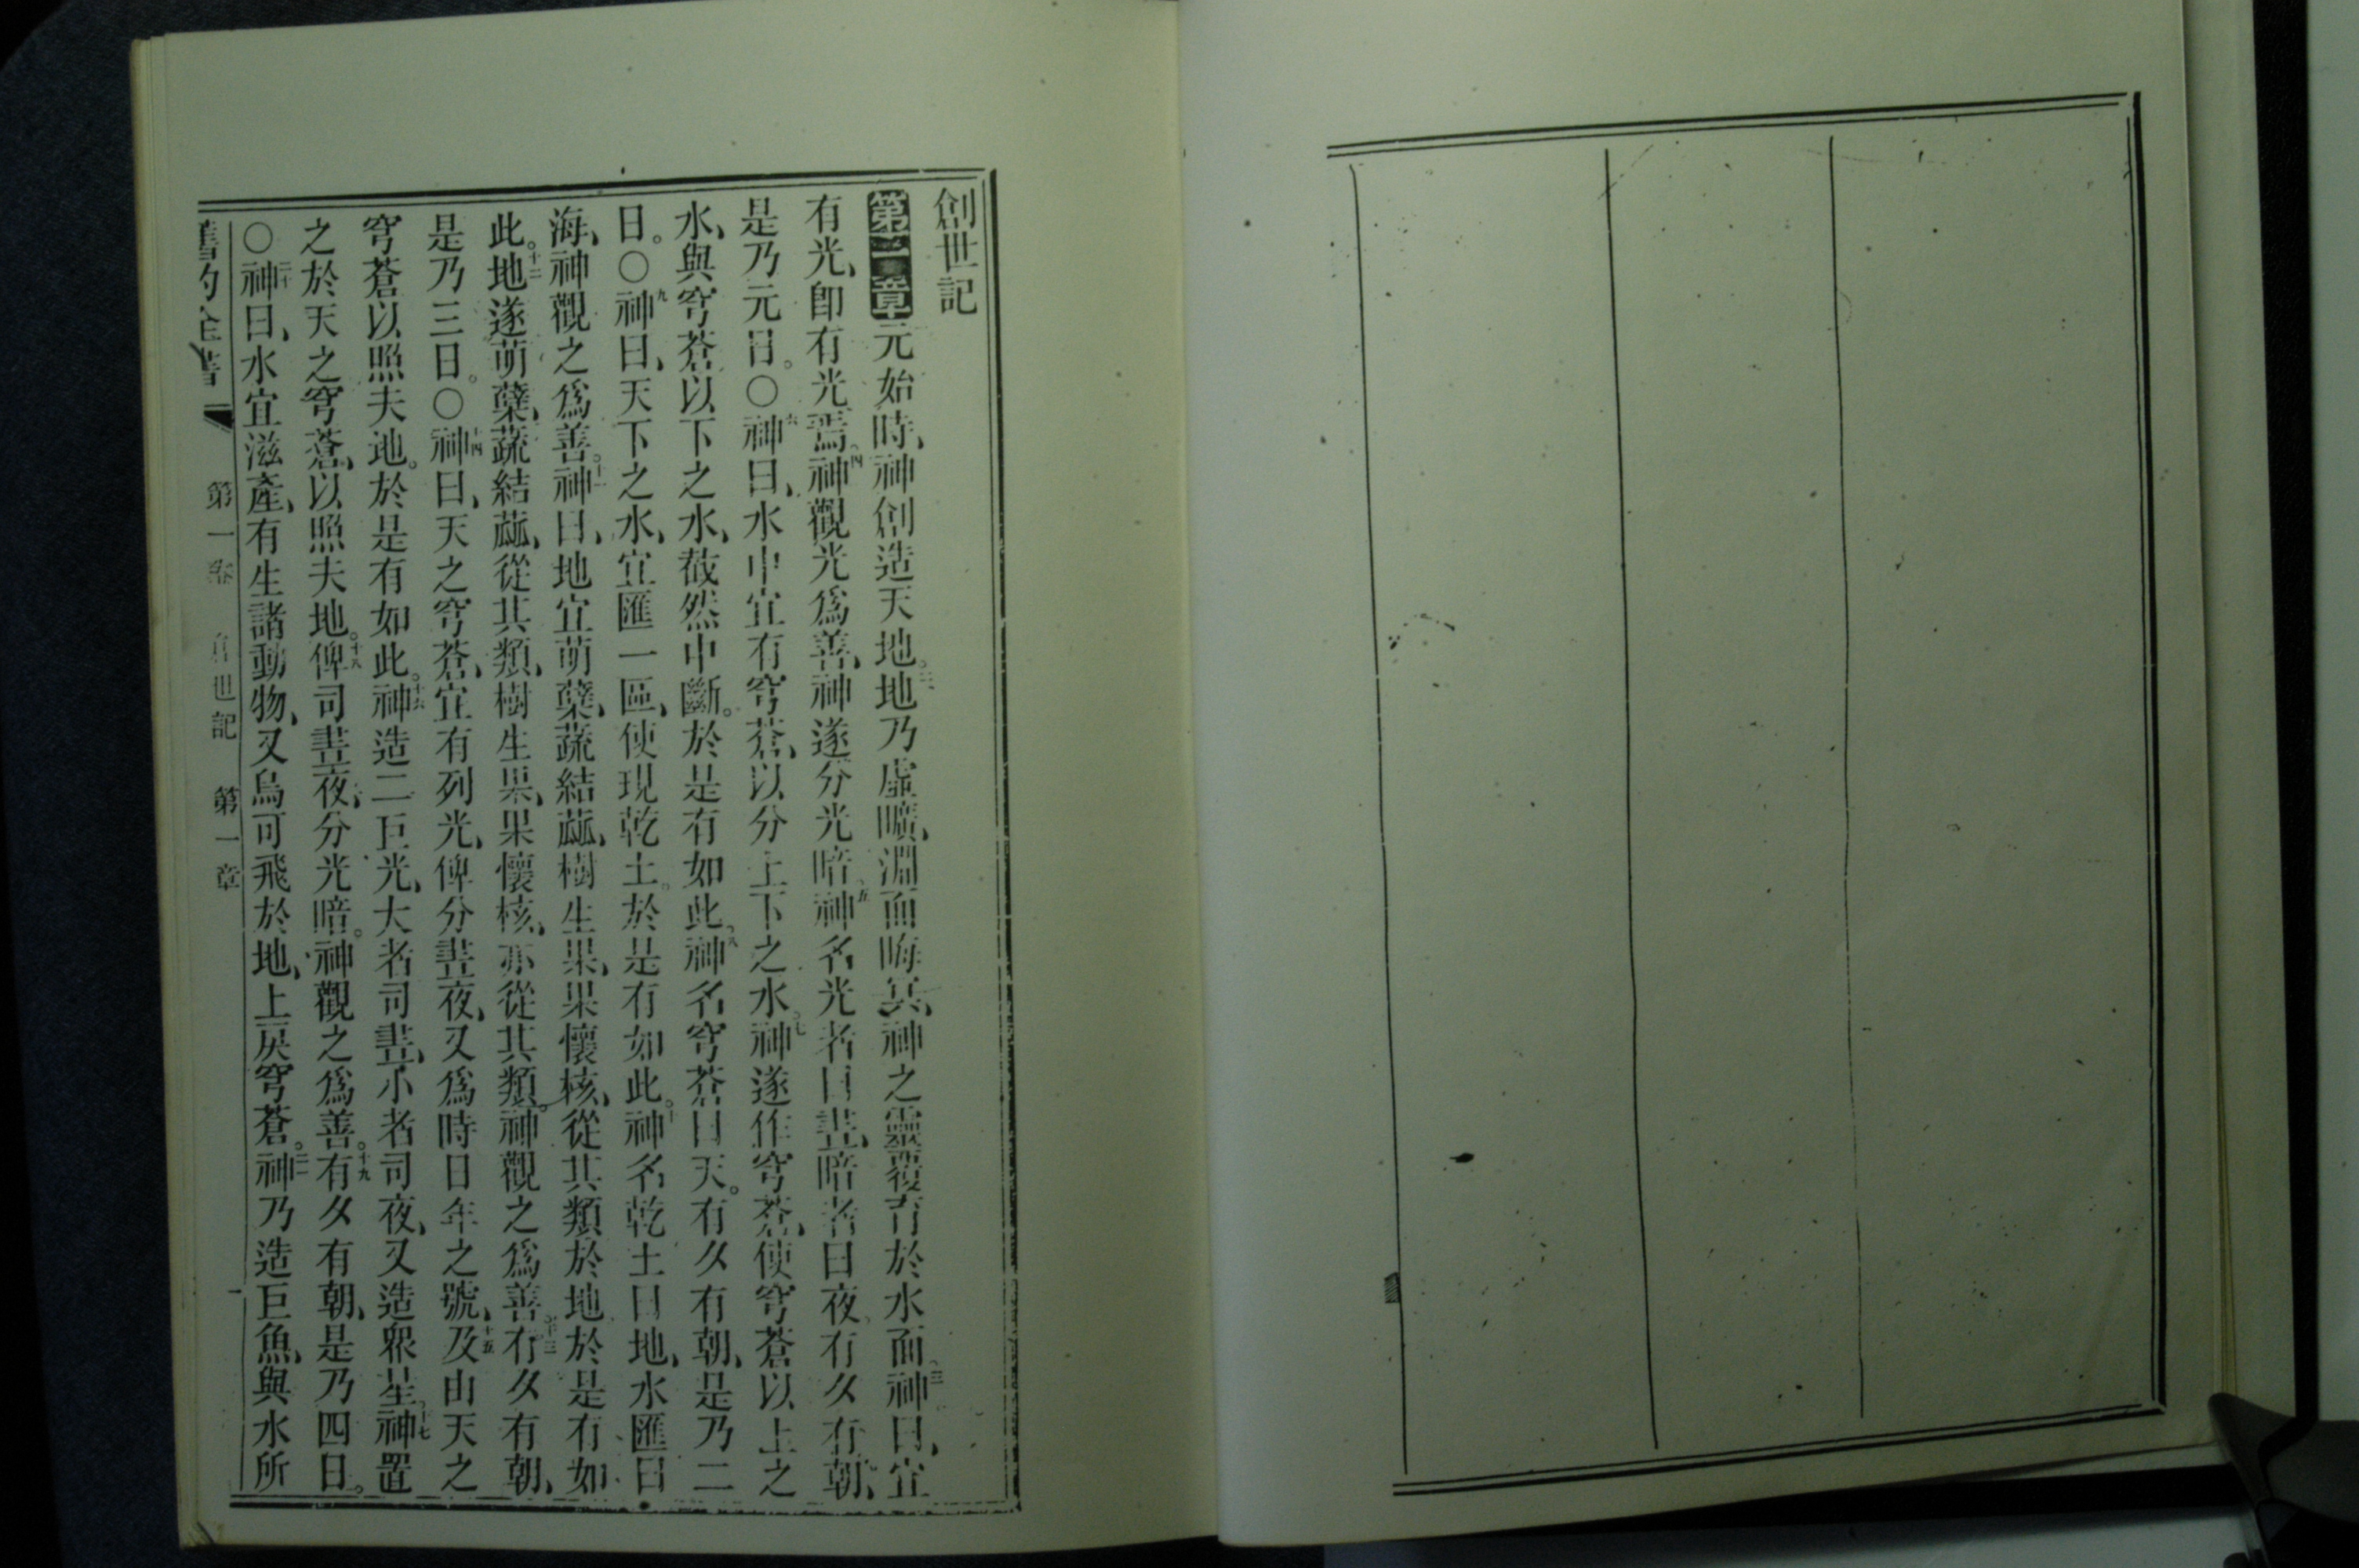 創世記
第一章元始時、神創造天地。二地乃虛曠、淵面晦冥、神之靈覆育於水面。三神曰、宜
有光、卽有光焉。四神觀光爲善、神遂分光暗。五神名光者曰晝、暗者曰夜、有夕有朝、
是乃元日。○六神曰、水中宜有穹蒼、以分上下之水。七神遂作穹蒼、使穹蒼以上之
水、與穹蒼以下之水、截然中斷。於是有如此。八神名穹蒼曰天。有夕有朝、是乃二
日。○九神曰、天下之水、宜匯一區、使現乾土。於是有如此。十神名乾土曰地、水匯曰
海、神觀之爲善。十一神曰、地宜萌蘖、蔬結蓏、樹生果、果懷核、從其類於地、於是有如
此。十二地遂萌蘖、蔬結蓏、從其類、樹生果、果懷核、亦從其類。神觀之爲善。十三有夕有朝、
是乃三日。○十四神曰、天之穹蒼、宜有列光、俾分晝夜、又爲時日年之號、十五及由天之
穹蒼以照夫地。於是有如此。十六神造二巨光、大者司晝、小者司夜、又造眾星。十七神置
之於天之穹蒼、以照夫地。十八俾司晝夜、分光暗。神觀之爲善。十九有夕有朝、是乃四日。
○二十神曰、水宜滋產、有生諸動物、又鳥可飛於地、上戾穹蒼。二一神乃造巨魚、與水所
舊約全書 第一卷 創世記 第一章 一